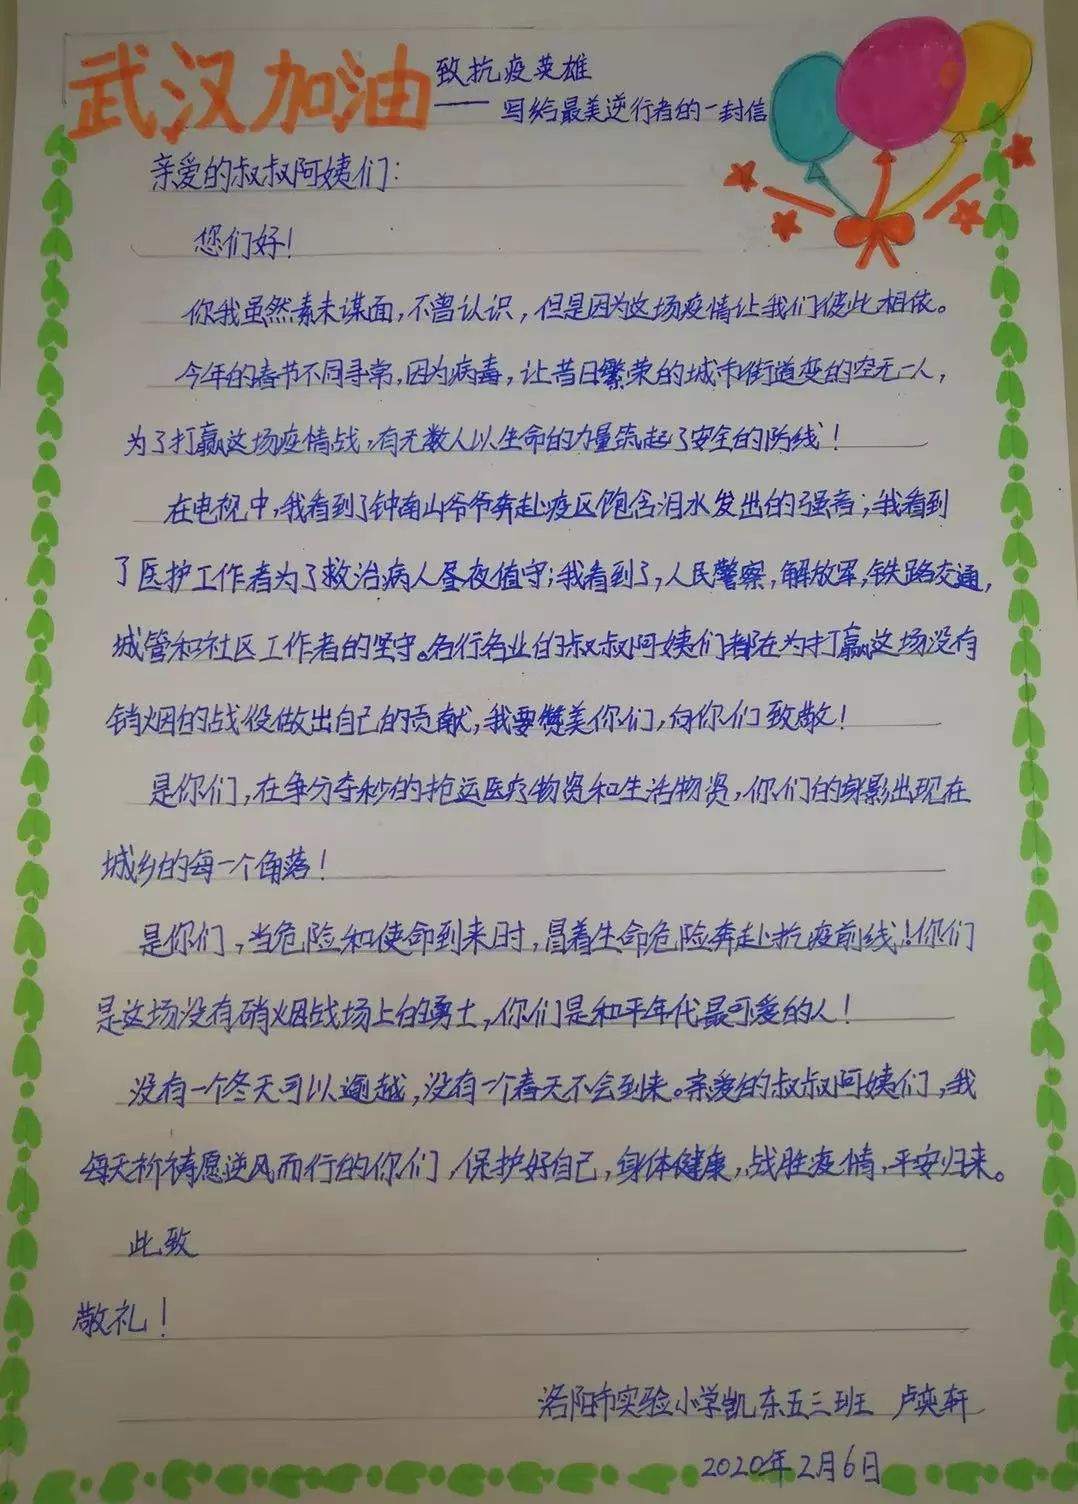 武汉加油
致抗疫英雄
——写给最美逆行者的一封信
亲爱的叔叔阿姨们:
您们好!
你我虽然素未谋面,不曾认识,但是因为这场疫情让我们彼此相依。
今年的春节不同寻常,因为病毒,让昔日繁荣的城市街道变的空无一人,
为了打赢这场疫情战,有无数人以生命的力量筑起了安全的防线!
在电视中,我看到了钟南山爷爷奔赴疫区饱含泪水发出的强音;我看到
了医护工作者为了救治病人昼夜值守;我看到了,人民警察,解放军,铁路交通,
城管和社区工作者的坚守。各行各业的叔叔阿姨们都在为打赢这场没有
销烟的战役做出自己的贡献,我要赞美你们,向你们致敬!
是你们,在争分夺秒的抢运医疗物资和生活物资,你们的身影出现在
城乡的每一个角落!
是你们,当危险和使命到来时,冒着生命危险奔赴抗疫前线!你们
是这场没有硝烟战场上的勇士,你们是和平年代最可爱的人!
没有一个冬天可以逾越,没有一个春天不会到来。亲爱的叔叔阿姨们,我
每天祈祷愿逆风而行的你们,保护好自己,身体健康,战胜疫情,平安归来。
此致
敬礼!
洛阳市实验小学凯东五三班 卢奕轩
2020年2月6日